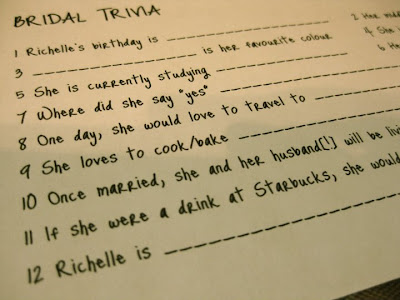 BRIDAL TRIVIA
1 Richelle's birthday is _______________ 2 Her
3 _______________ is her favourite colour 4 She
5 She is currently studying _______________ 6
7 Where did she say "yes" _______________
8 One day, she would love to travel to _______________
9 She loves to cook/bake _______________
10 Once married, she and her husband[!] will be
11 If she were a drink at Starbucks, she would
12 Richelle is _______________